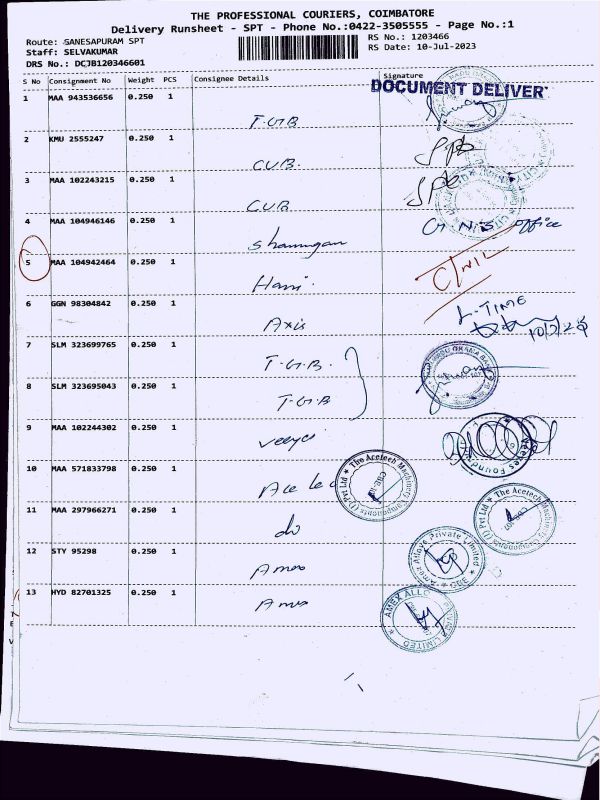 THE PROFESSIONAL COURIERS, COIMBATORE
Delivery Runsheet - SPT - Phone No.:0422-3505555 - Page No.:1
Route: GANESAPURAM SPT
RS No.: 1203466
Staff: SELVAKUMAR
RS Date: 10-Jul-2023
DRS No.: DCJB120346601
S No Consignment No Weight PCS Consignee Details Signature
DOCUMENT DELIVER
1 MAA 943536656 0.250 1 T.G.B
2 KMU 2555247 0.250 1 C.U.B.
3 MAA 102243215 0.250 1 C.U.B
4 MAA 104946146 0.250 1 Shanmugam office
5 MAA 104942464 0.250 1 Hani
6 GGN 98304842 0.250 1 Axis L-TIME
7 SLM 323699765 0.250 1 T.G.B.
8 SLM 323695043 0.250 1 T.G.B
9 MAA 102244302 0.250 1 Veeyes Found
10 MAA 571833798 0.250 1 The Acetech Machinery Components (I) Pvt Ltd
11 MAA 297966271 0.250 1 do The Acetech Machinery Components (I) Pvt Ltd
12 STY 95298 0.250 1 Amex Amex Alloys Private Limited
13 HYD 82701325 0.250 1 Amex AMEX ALLOYS PRIVATE LIMITED